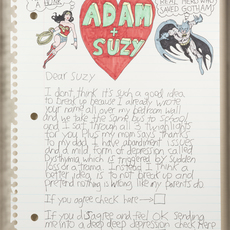 A HUNK
REAL HERO WHO
SAVED GOTHAM!
ADAM
+
SUZY
Dear Suzy
I dont think it's such a good idea
to break up because I already wrote
your name all over my bedroom wall
and we take the same bus to school
and I sat through all 3 Twilights
for you. Plus my mom says thanks
to my dad, I have abandonment issues
and a mild form of depression called
Dysthymia which is triggered by sudden
loss or a trauma. Instead I think a
better idea is to not break up and
pretend nothing is wrong like my parents do.
If you agree check here →
If you disagree and feel OK sending
me into a deep deep depression check here